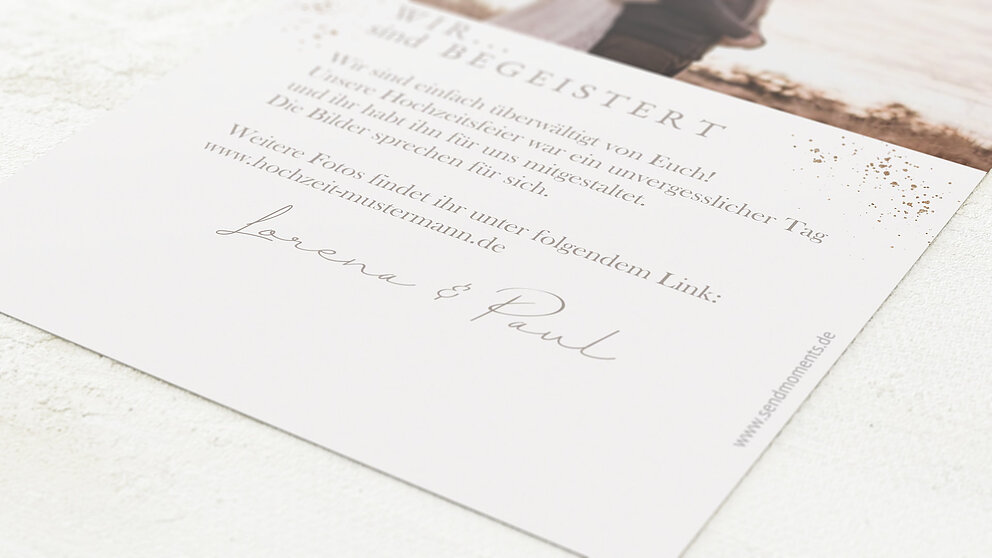 WIR...
sind BEGEISTERT
Wir sind einfach überwältigt von Euch!
Unsere Hochzeitsfeier war ein unvergesslicher Tag
und ihr habt ihn für uns mitgestaltet.
Die Bilder sprechen für sich.
Weitere Fotos findet ihr unter folgendem Link:
www.hochzeit-mustermann.de
Lorena & Paul
www.sendmoments.de